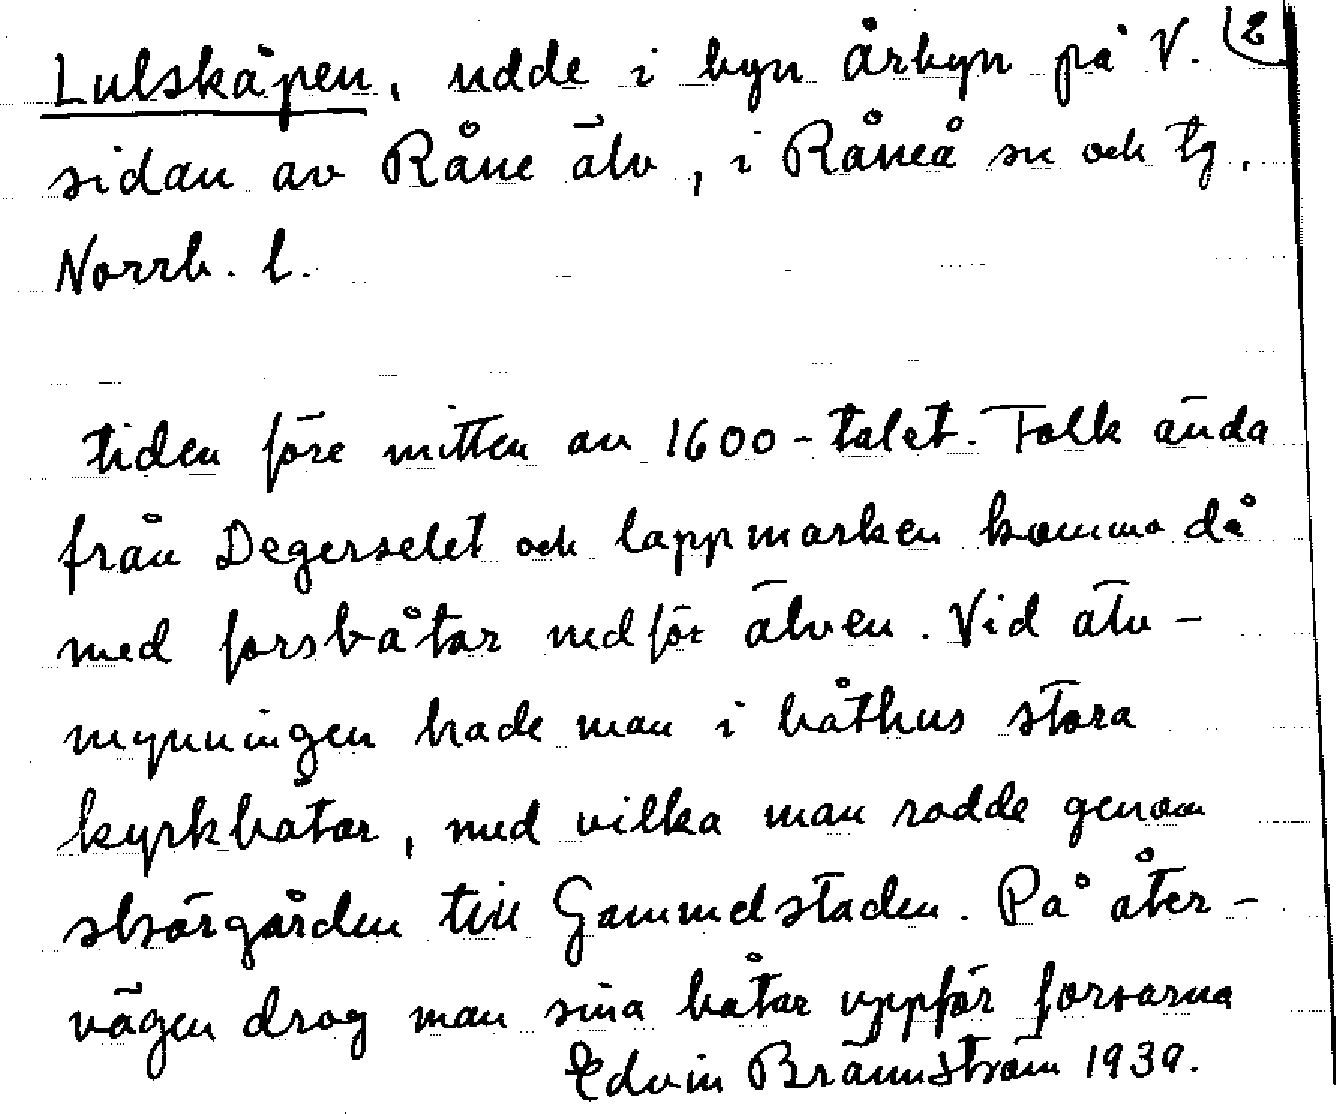 Lulskåpen, udde i byn Årbyn på V. 2
sidan av Råne älv, i Råneå sn och tg,
Norrb. l.
tiden före mitten av 1600-talet. Folk ända
från Degerselet och lappmarken komma då
med forsbåtar nedför älven. Vid älv-
mynningen hade man i båthus stora
kyrkbåtar, med vilka man rodde genom
skärgården till Gammelstaden. På åter-
vägen drog man sina båtar uppför forsarna
Edvin Brännström 1939.